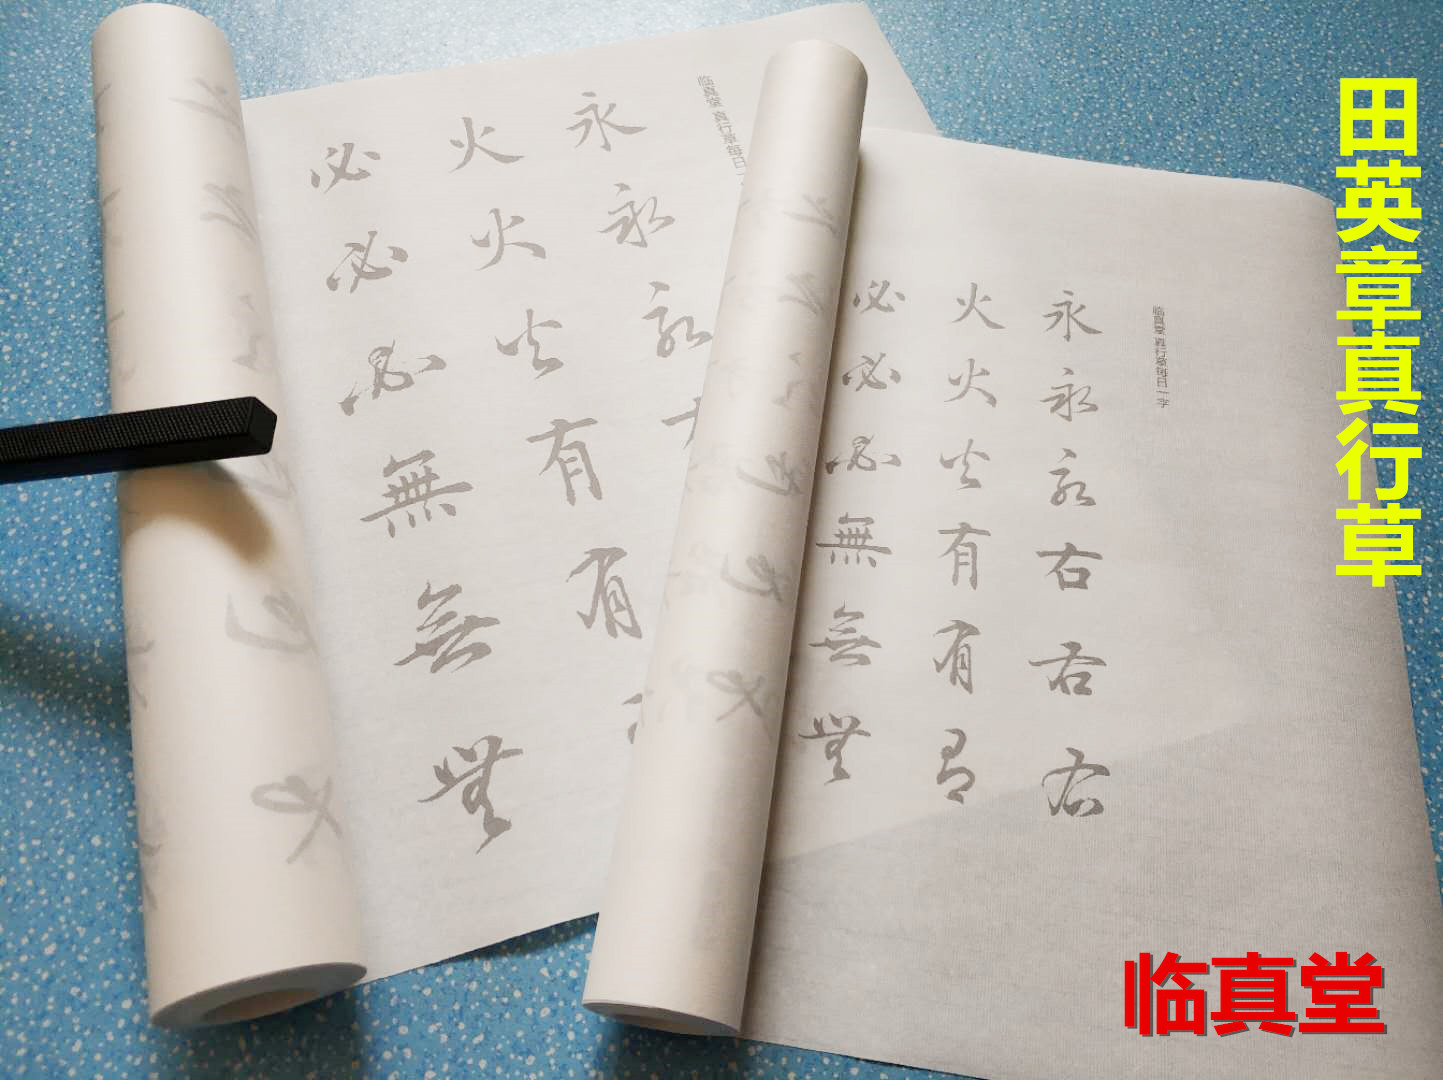 田英章真行草
临真堂 真行草每日一字
永永永右右右
火火火有有有
必必必無無無
临真堂 真行草每日一
永永永
火火火有有
必必必無無無
临真堂